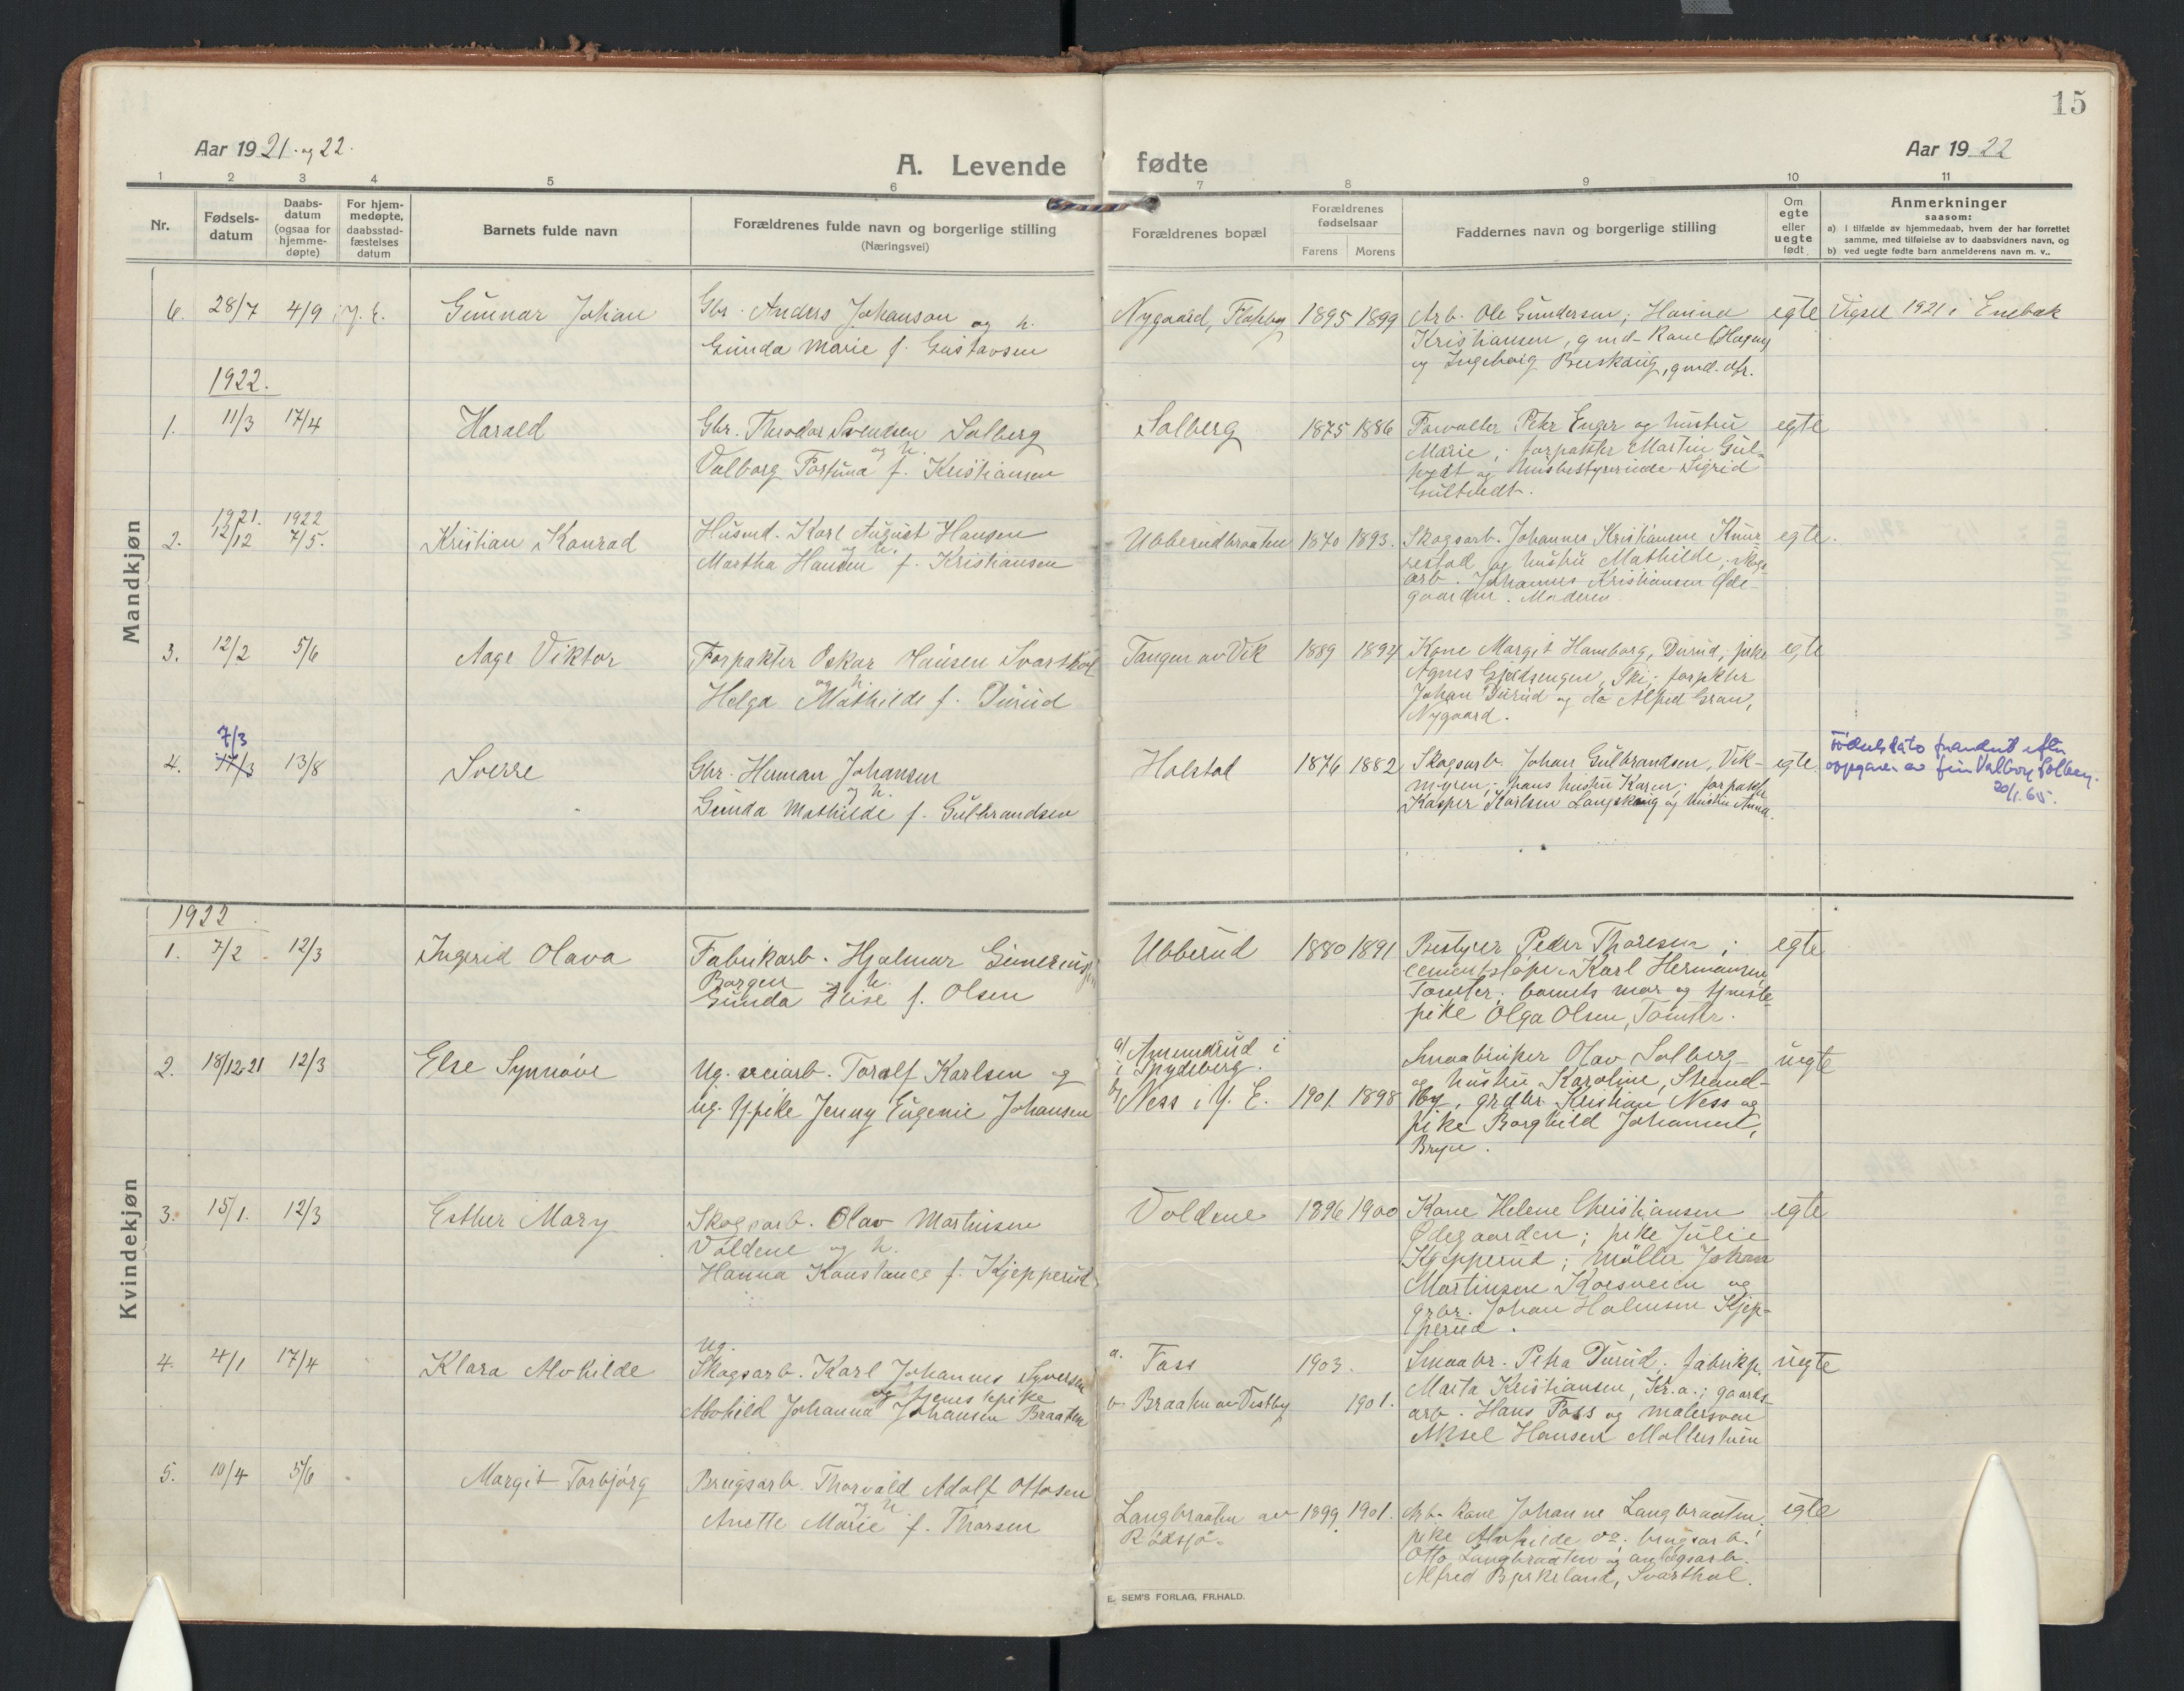 15
Aar 1921. og 22.
A. Levende fødte
Aar 1922
1 2 3 4 5 6 7 8 9 10 11
Nr.
Fødsels-
datum
Daabs-
datum
(ogsaa for
hjemme-
døpte)
For hjem-
medøpte,
daabsstad-
fæstelses
datum
Barnets fulde navn
Forældrenes fulde navn og borgerlige stilling
(Næringsvei)
Forældrenes bopæl
Forældrenes
fødselsaar
Farens Morens
Faddernes navn og borgerlige stilling
Om
egte
eller
uegte
født
Anmerkninger
saasom:
a) i tilfælde av hjemmedaab, hvem der har forrettet
samme, med tilføielse av to daabsvidners navn, og
b) ved uegte fødte barn anmelderens navn m. v..
Mandkjøn
6. 28/7 4/9 Y. E. Gunnar Johan
Gbr. Anders Johanson og h.
Gunda Marie f. Gustavsen
Nygaard, Flateby 1895 1899
Arb. Ole Gundersen; Hanna
Kristiansen, gmd. kone
og Ingeborg Buskaug, gmd. dtr.
egte Vigsel 1921 i Enebak
1922.
1. 11/3 17/4 Harald
Gbr. Theodor Svendsen Solberg
og h.
Valborg Fortuna f. Kristiansen
Solberg 1875 1886
Forvalter Petr Enger og hustru
Marie; forpakter Martin Gul-
tvedt og husbestyrerinde Sigrid
Gultvedt.
egte
2. 1921. 12/12 1922 7/5. Kristian Konrad
Husmd. Karl August Hansen
og h.
Martha Hansen f. Kristiansen
Ubberudbraaten 1870 1893.
Skogsarb. Johannes Kristiansen Knur-
restad og hustru Mathilde; skogs-
arb. Johannes Kristiansen Øde-
gaarden. Moderen
egte.
3. 12/2 5/6 Aage Viktor
Forpakter Oskar Hansen Svarthol
og h.
Helga Mathilde f. Durud
Tangen av Vik 1889 1894
Kone Margit Hamborg, Durud; pike
Agnes Gjedsengen, Ski; forpakter
Johan Durud og do Alfred Gran,
Nygaard.
egte
4. 7/3 17/3 13/8 Sverre
Gbr. Herman Johansen
og h.
Gunda Mathilde f. Gulbrandsen
Holstad 1876 1882
Skogsarb. Johan Gulbrandsen, Vik-
myren; hans hustru Karen; forpakter
Kasper Karlsen Langskaug og hustru Anna.
egte.
Fødselsdato forandret efter
oppgave av fru Valborg Solberg.
20/1.65.
Kvindekjøn
1922
1. 7/2 12/3 Ingerid Olava
Fabrikarb. Hjalmar
Borgen h.
Gunda Elise f. Olsen
Ubberud 1880 1891
Bestyrer Peder Thoresen;
cementstøper Karl Hermansen
Tomter; barnets mor og tjeneste-
pike Olga Olsen, Tomter.
egte
2. 18/12.21 12/3 Else Synnøve
Ug. veiarb. Toralf Karlsen og
ug. tj.pike Jenny Eugenie Johansen
a/ i
i Spydeberg.
b/ Ness i Y. E. 1901. 1898
Smaabruker Olav Solberg
og hustru Karoline, Strand-
by, grdbr. Kristian Ness og
pike Borghild Johansen,
Bryn.
uegte
3. 15/1. 12/3 Esther Mary
Skogsarb. Olav Martinsen
Voldene og h.
Hanna Konstance f. Kjepperud
Voldene 1896 1900
Kone Helene Christiansen
Ødegaarden; pike Julie
Kjepperud; møller Johan
Martinsen Korsveien og
grbr. Johan Holmsen Kjep-
perud.
egte
4. 4/1 17/4 Klara Alvhilde
Ug.
Skogsarb. Karl Johannes Syversen
og tjenestepike
Alvhild Johanna Johansen Braaten
a. Foss 1903.
b. Braaten av Vestby 1901.
Smaabr. Petra Durud; fabrikp.
Marta Kristiansen, Kr.a.; gaards-
arb. Hans Foss og malersven
Aksel Hansen
uegte
5. 10/4 5/6 Margit Torbjørg
Brugsarb. Thorvald Adolf Ottosen
og h.
Anette Marie f. Thorsen
Langbraaten av
Rødsjø. 1899 1901.
Arb. kone Johanne Langbraaten;
pike Alvhilde do; brugsarb.
Otto Langbraaten og anlægsarb.
Alfred Bjerkeland, Svarthol.
egte
E. SEM'S FORLAG, FR.HALD.